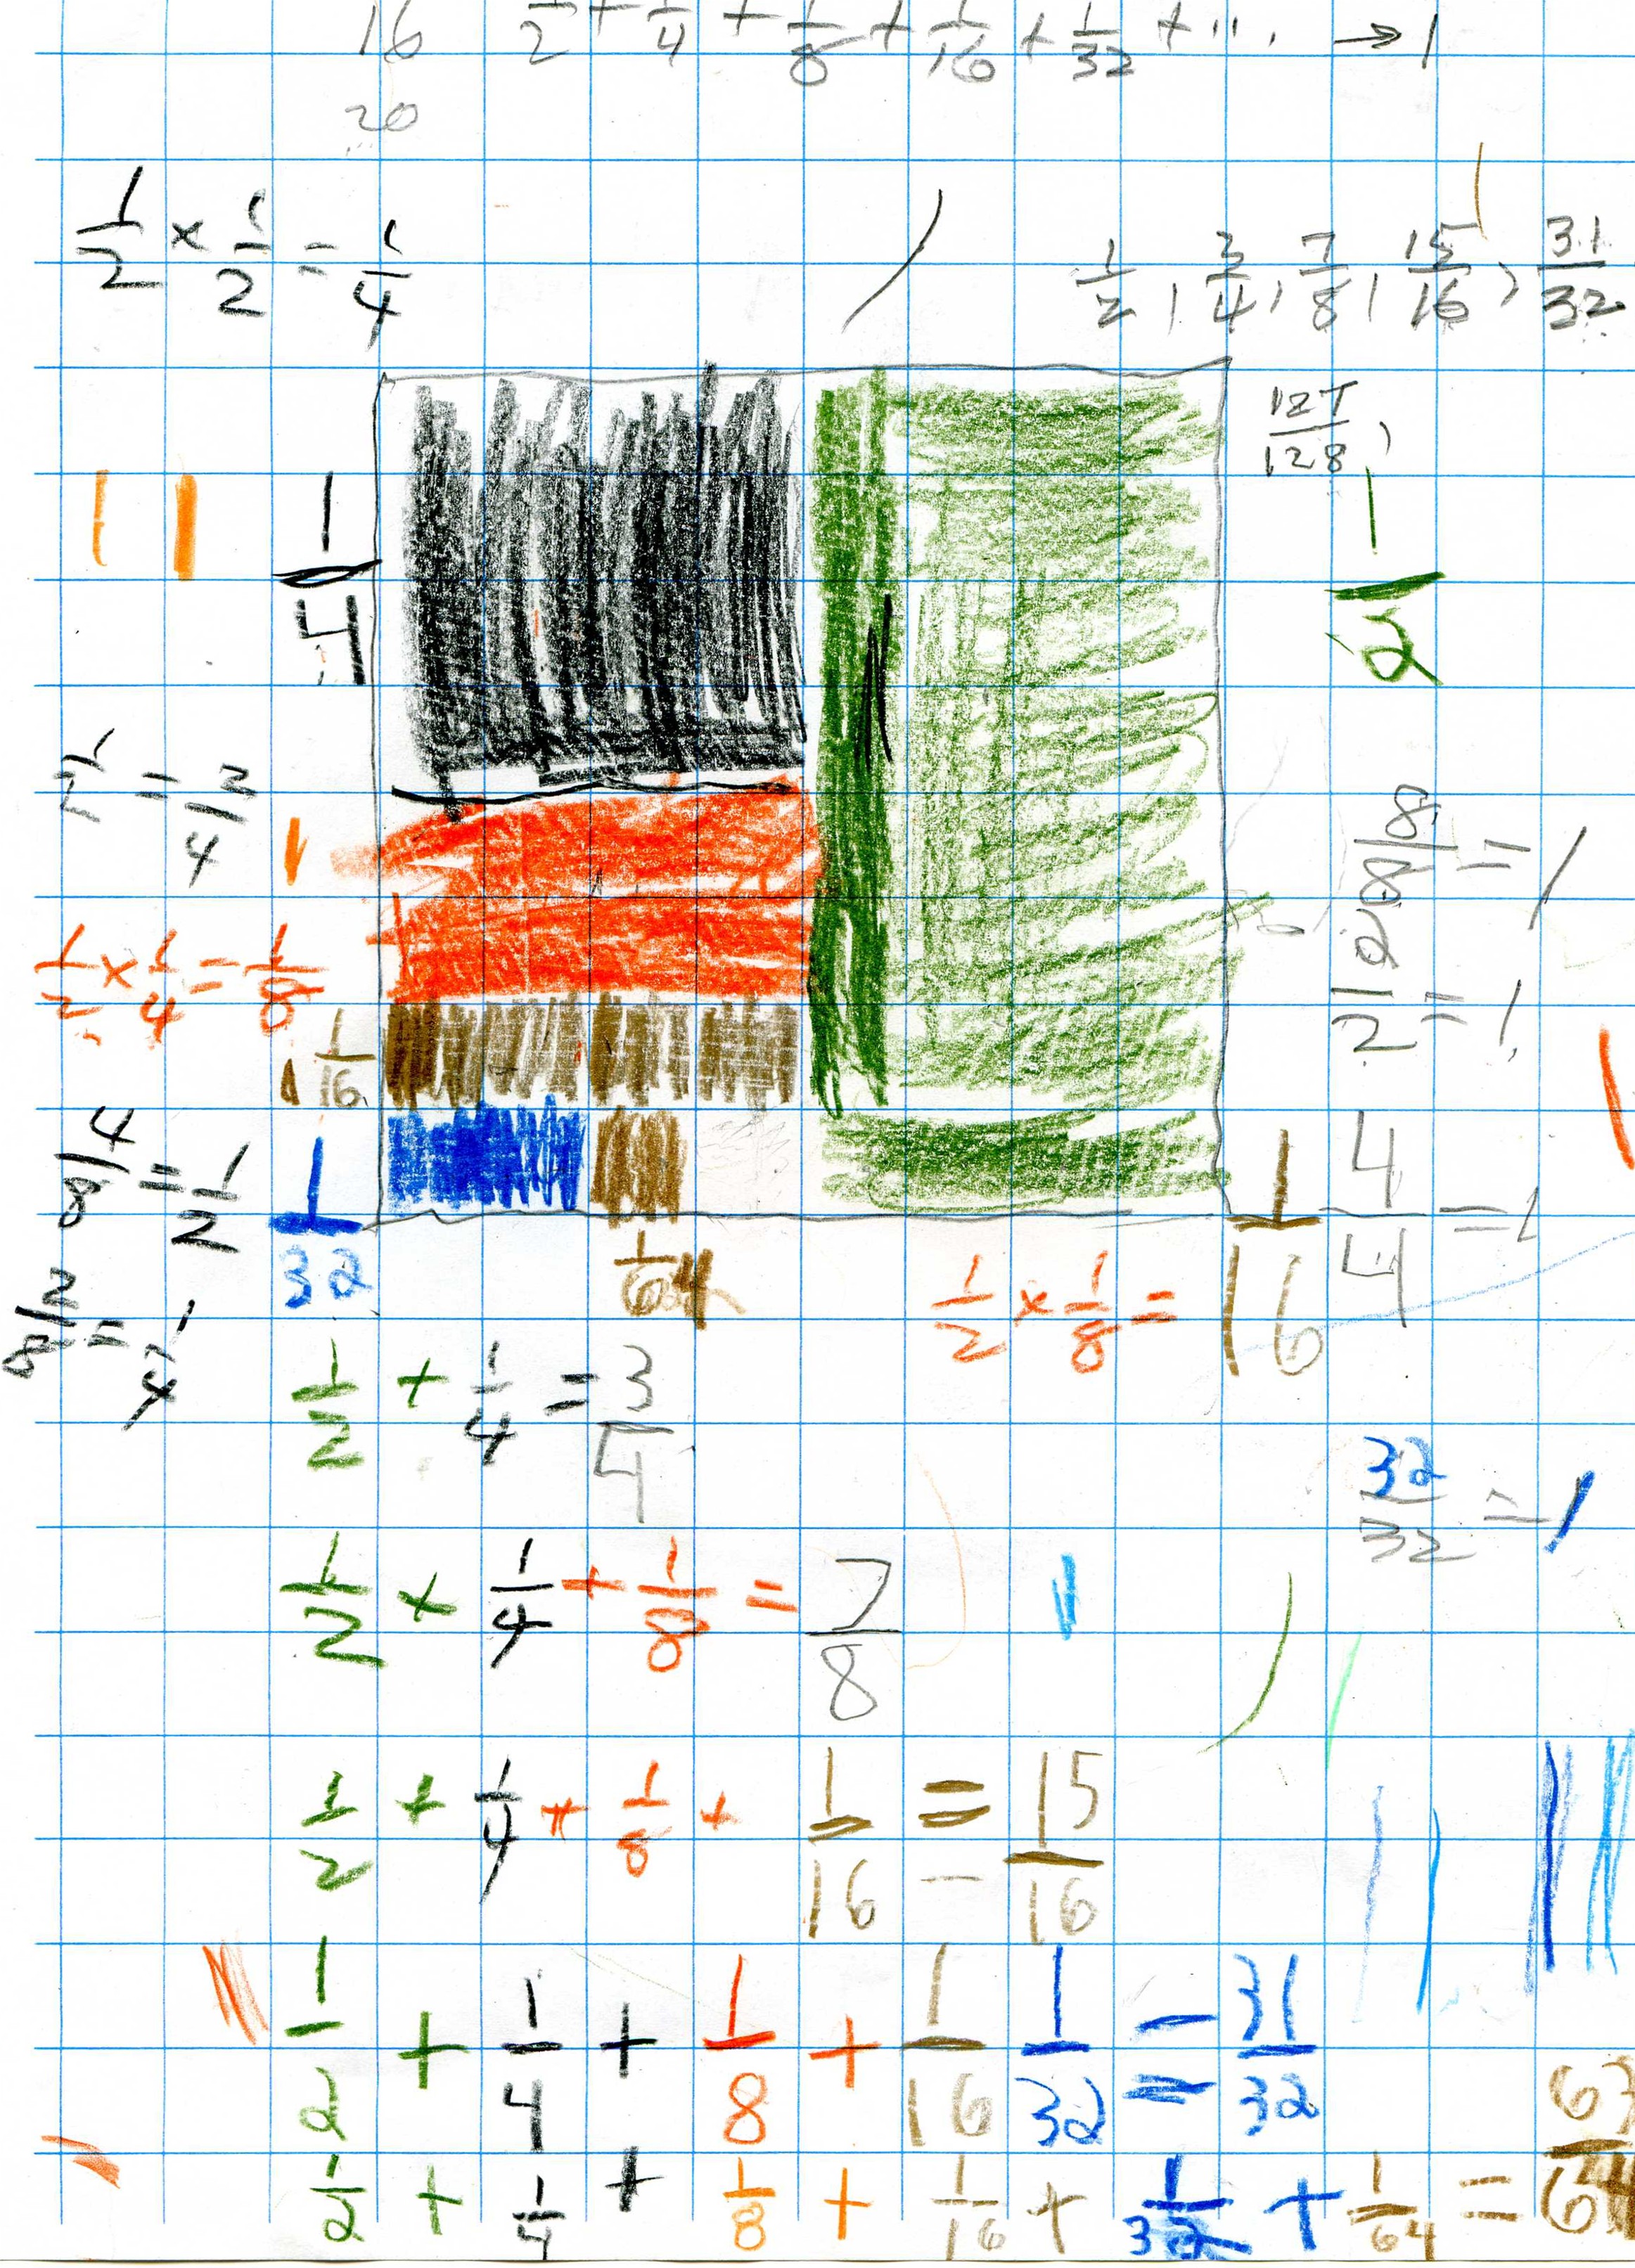 16 1/2 + 1/4 + 1/8 + 1/16 + 1/32 + ... → 1
20
1/2 × 1/2 = 1/4
1/2, 3/4, 7/8, 15/16, 31/32
127/128,
1/4
1/2
1/2 = 2/4
8/8 = 1
1/2 × 1/4 = 1/8
2/2 = 1
1/16
4/8 = 1/2
1/32
1/64
2/8 = 1/4
1/2 × 1/8 = 1/16
4/4 = 1
1/2 + 1/4 = 3/4
32/32 = 1
1/2 + 1/4 + 1/8 = 7/8
1/2 + 1/4 + 1/8 + 1/16 = 15/16
1/2 + 1/4 + 1/8 + 1/16 1/32 = 31/32
1/2 + 1/4 + 1/8 + 1/16 + 1/32 + 1/64 = 63/64